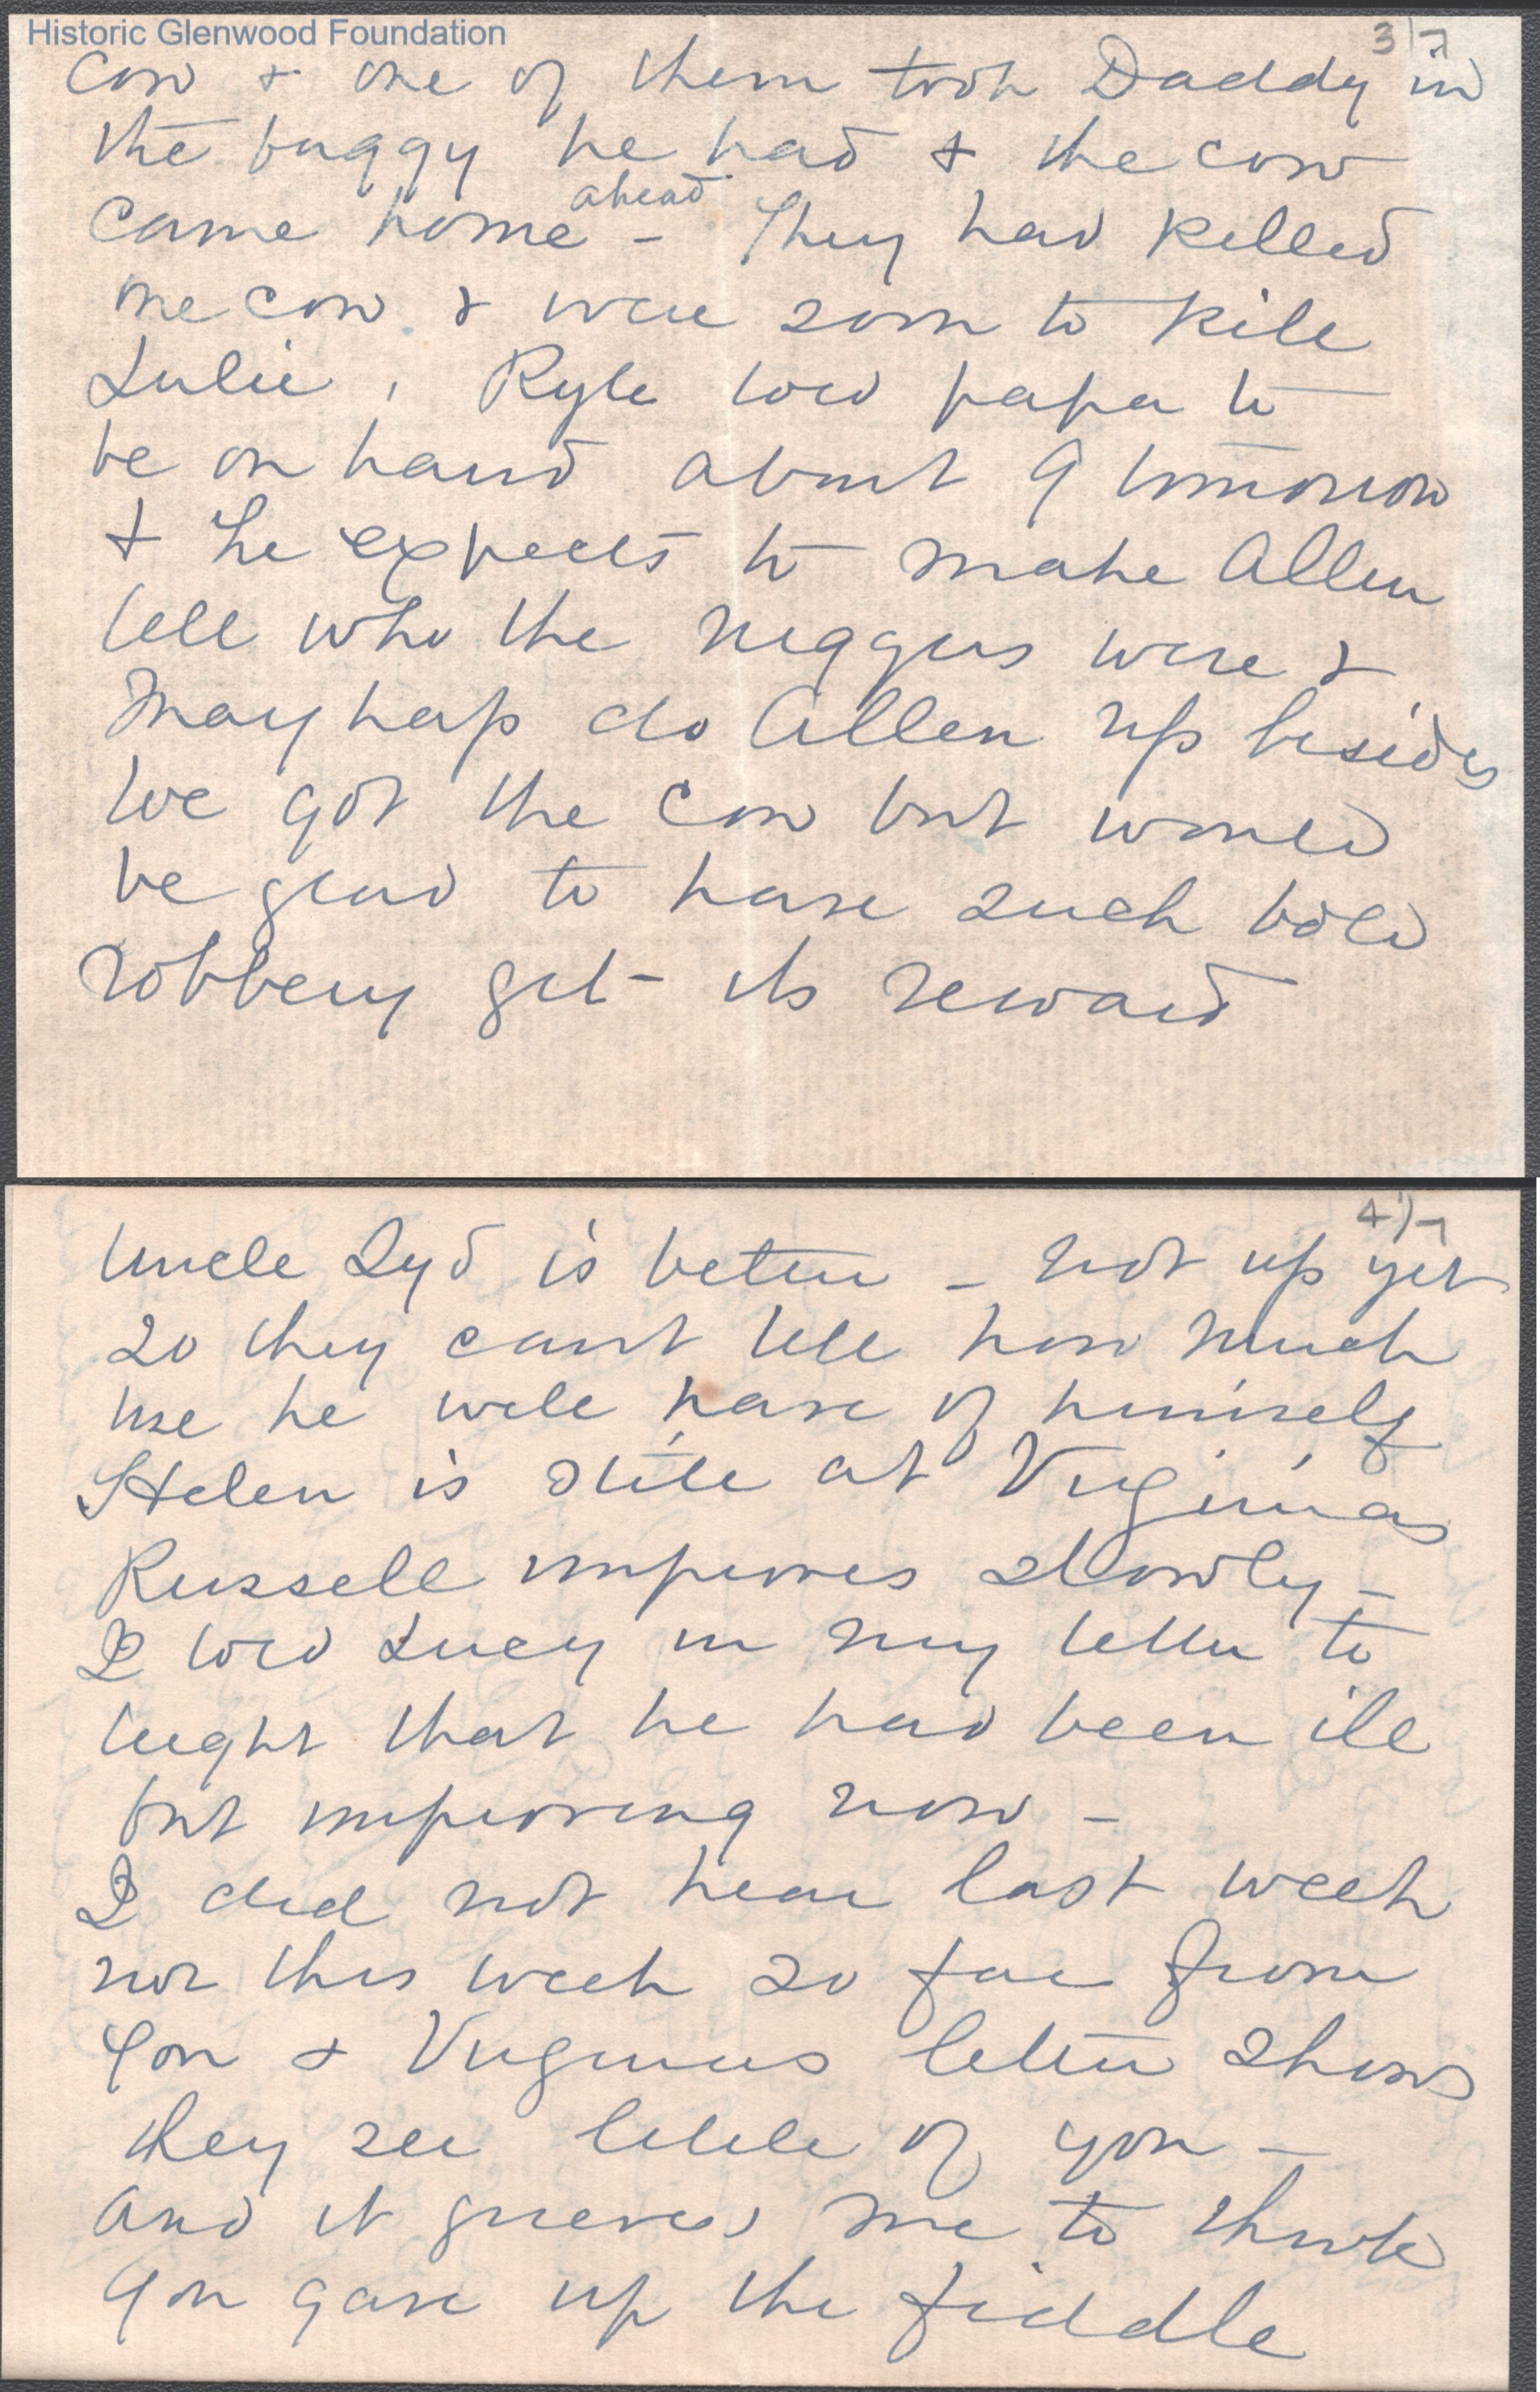 Historic Glenwood Foundation
3/7
cow & one of them took Daddy in
the buggy he had & the cow
came home ahead - They had killed
one cow & were soon to kill
Julie, Ryle told papa to
be on hand about 9 tomorrow
& he expects to make Allen
tell who the niggers were &
mayhap do Allen up besides
we got the cow but would
be glad to have such bold
robbery get its reward
4/7
Uncle Syd is better - not up yet
so they cant tell how much
use he will have of himself
Helen is still at Virginias
Russell improves slowly -
I told Lucy in my letter to
night that he had been ill
but improving now -
I did not hear last week
nor this week so far from
you & Virginias letter shows
they see little of you -
and it grieves me to think
you gave up the fiddle